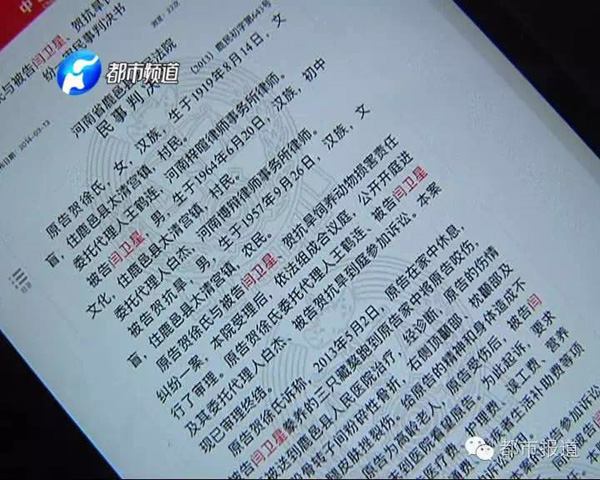 都市频道
氏与被告闫卫星、贺抗旱
纷一案民事判决书
2014-03-13
浏览：22次
河南省鹿邑县人民法院
民事判决书
(2013) 鹿民初字第643号
原告贺徐氏，女，汉族，生于1919年8月14日，文
盲，住鹿邑县太清宫镇，村民。
委托代理人王鹤连，河南梓暄律师事务所律师。
被告闫卫星，男，生于1964年6月20日，汉族，初中
文化，住鹿邑县太清宫镇，村民。
委托代理人白杰，河南博辩律师事务所律师。
被告贺抗旱，男，生于1957年9月26日，汉族，文
盲，住鹿邑县太清宫镇，农民。
原告贺徐氏与被告闫卫星、贺抗旱饲养动物损害责任
纠纷一案，本院受理后，依法组成合议庭，公开开庭进
行了审理。原告贺徐氏委托代理人王鹤连、被告闫卫星
及其委托代理人白杰、被告贺抗旱到庭参加诉讼。本案
现已审理终结。
原告贺徐氏诉称，2013年5月2日，原告在家中休息，
被告闫卫星豢养的三只藏獒跑到原告家中将原告咬伤，
被送到鹿邑县人民医院治疗，经诊断，原告的伤情
股骨转子间粉碎性骨折，右侧顶颞部、枕颞部及
皮肤挫裂伤，给原告的精神和身体造成不
原告为高龄老人，原告受伤后，被告闫
未到医院看望原告，为此起诉，要求
医疗费、护理费、误工费、营养
者生活补助费等项
参加诉讼
都市报道